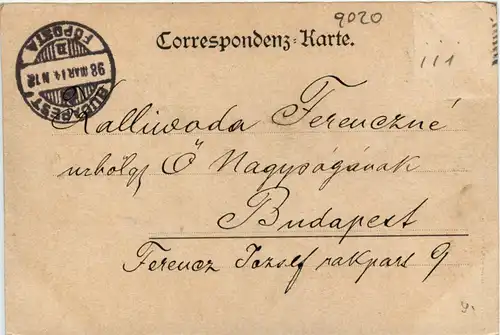 9020
Correspondenz-Karte.
111
BUDAPEST
98 MAR 14 N 12
FŐPOSTA
Kalliwoda Ferenczné
úrhölgy Ő Nagyságának
Budapest
Ferencz József rakpart 9
9.